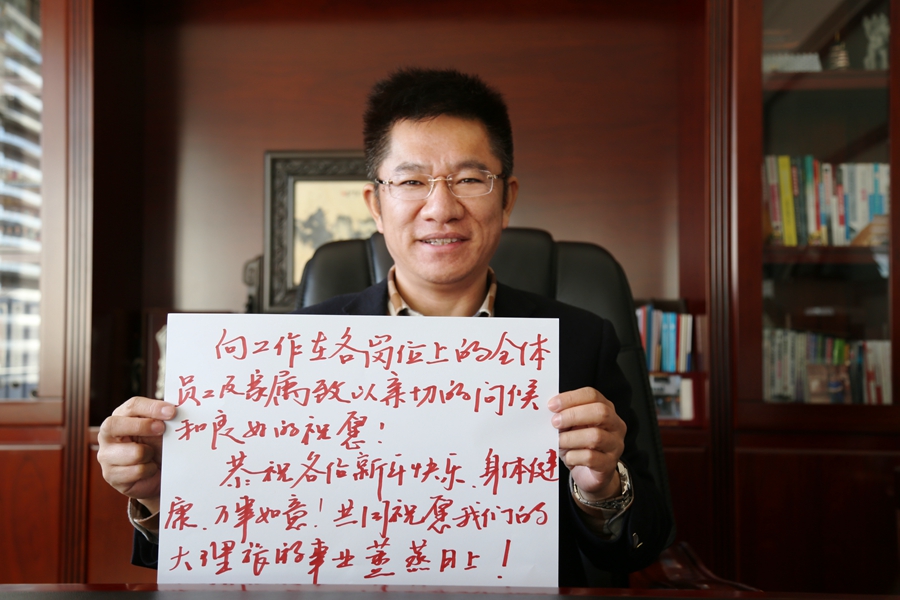 向工作在各岗位上的全体
员工及家属致以亲切的问候
和良好的祝愿！
恭祝各位新年快乐、身体健
康、万事如意！共同祝愿我们的
大理旅的事业蒸蒸日上！